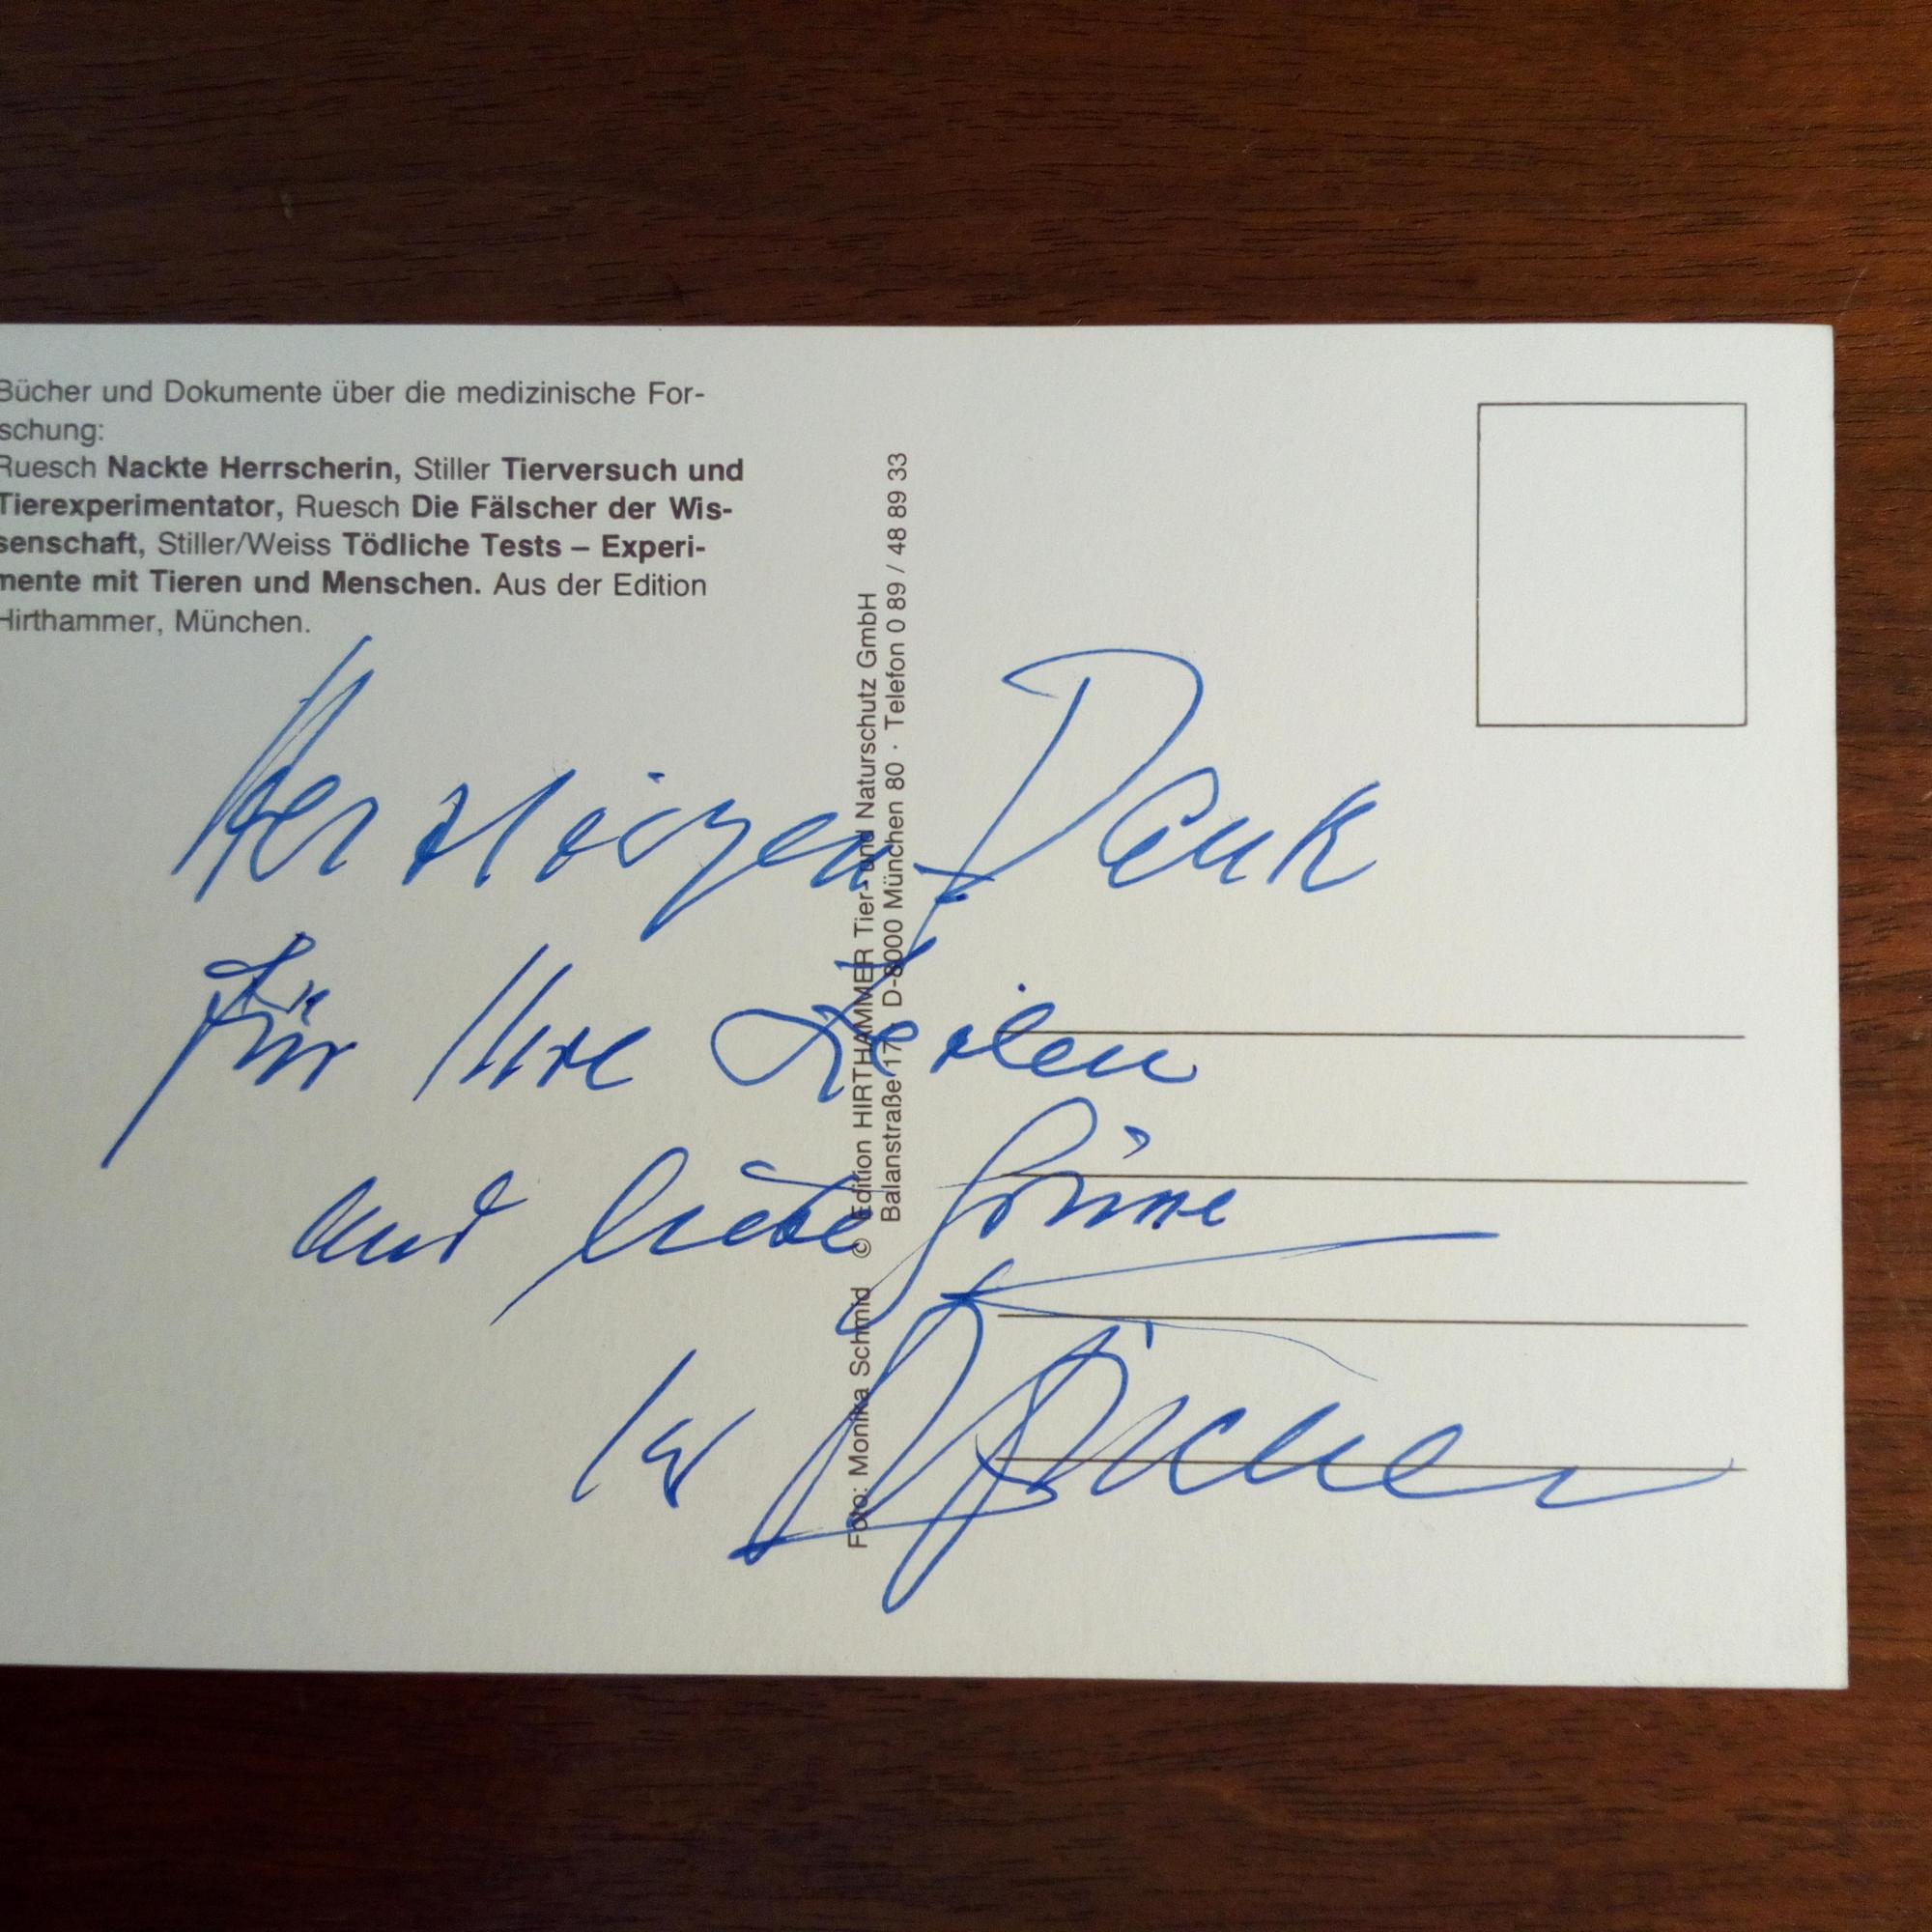 Bücher und Dokumente über die medizinische For-
schung:
Ruesch Nackte Herrscherin, Stiller Tierversuch und
Tierexperimentator, Ruesch Die Fälscher der Wis-
senschaft, Stiller/Weiss Tödliche Tests – Experi-
mente mit Tieren und Menschen. Aus der Edition
Hirthammer, München.
Foto: Monika Schmid © Edition HIRTHAMMER Tier- und Naturschutz GmbH
Balanstraße D-8000 München 80 · Telefon 0 89 / 48 89 33
Herzlichen Dank
für Ihre Zeilen
und liebe Grüsse
Ihr